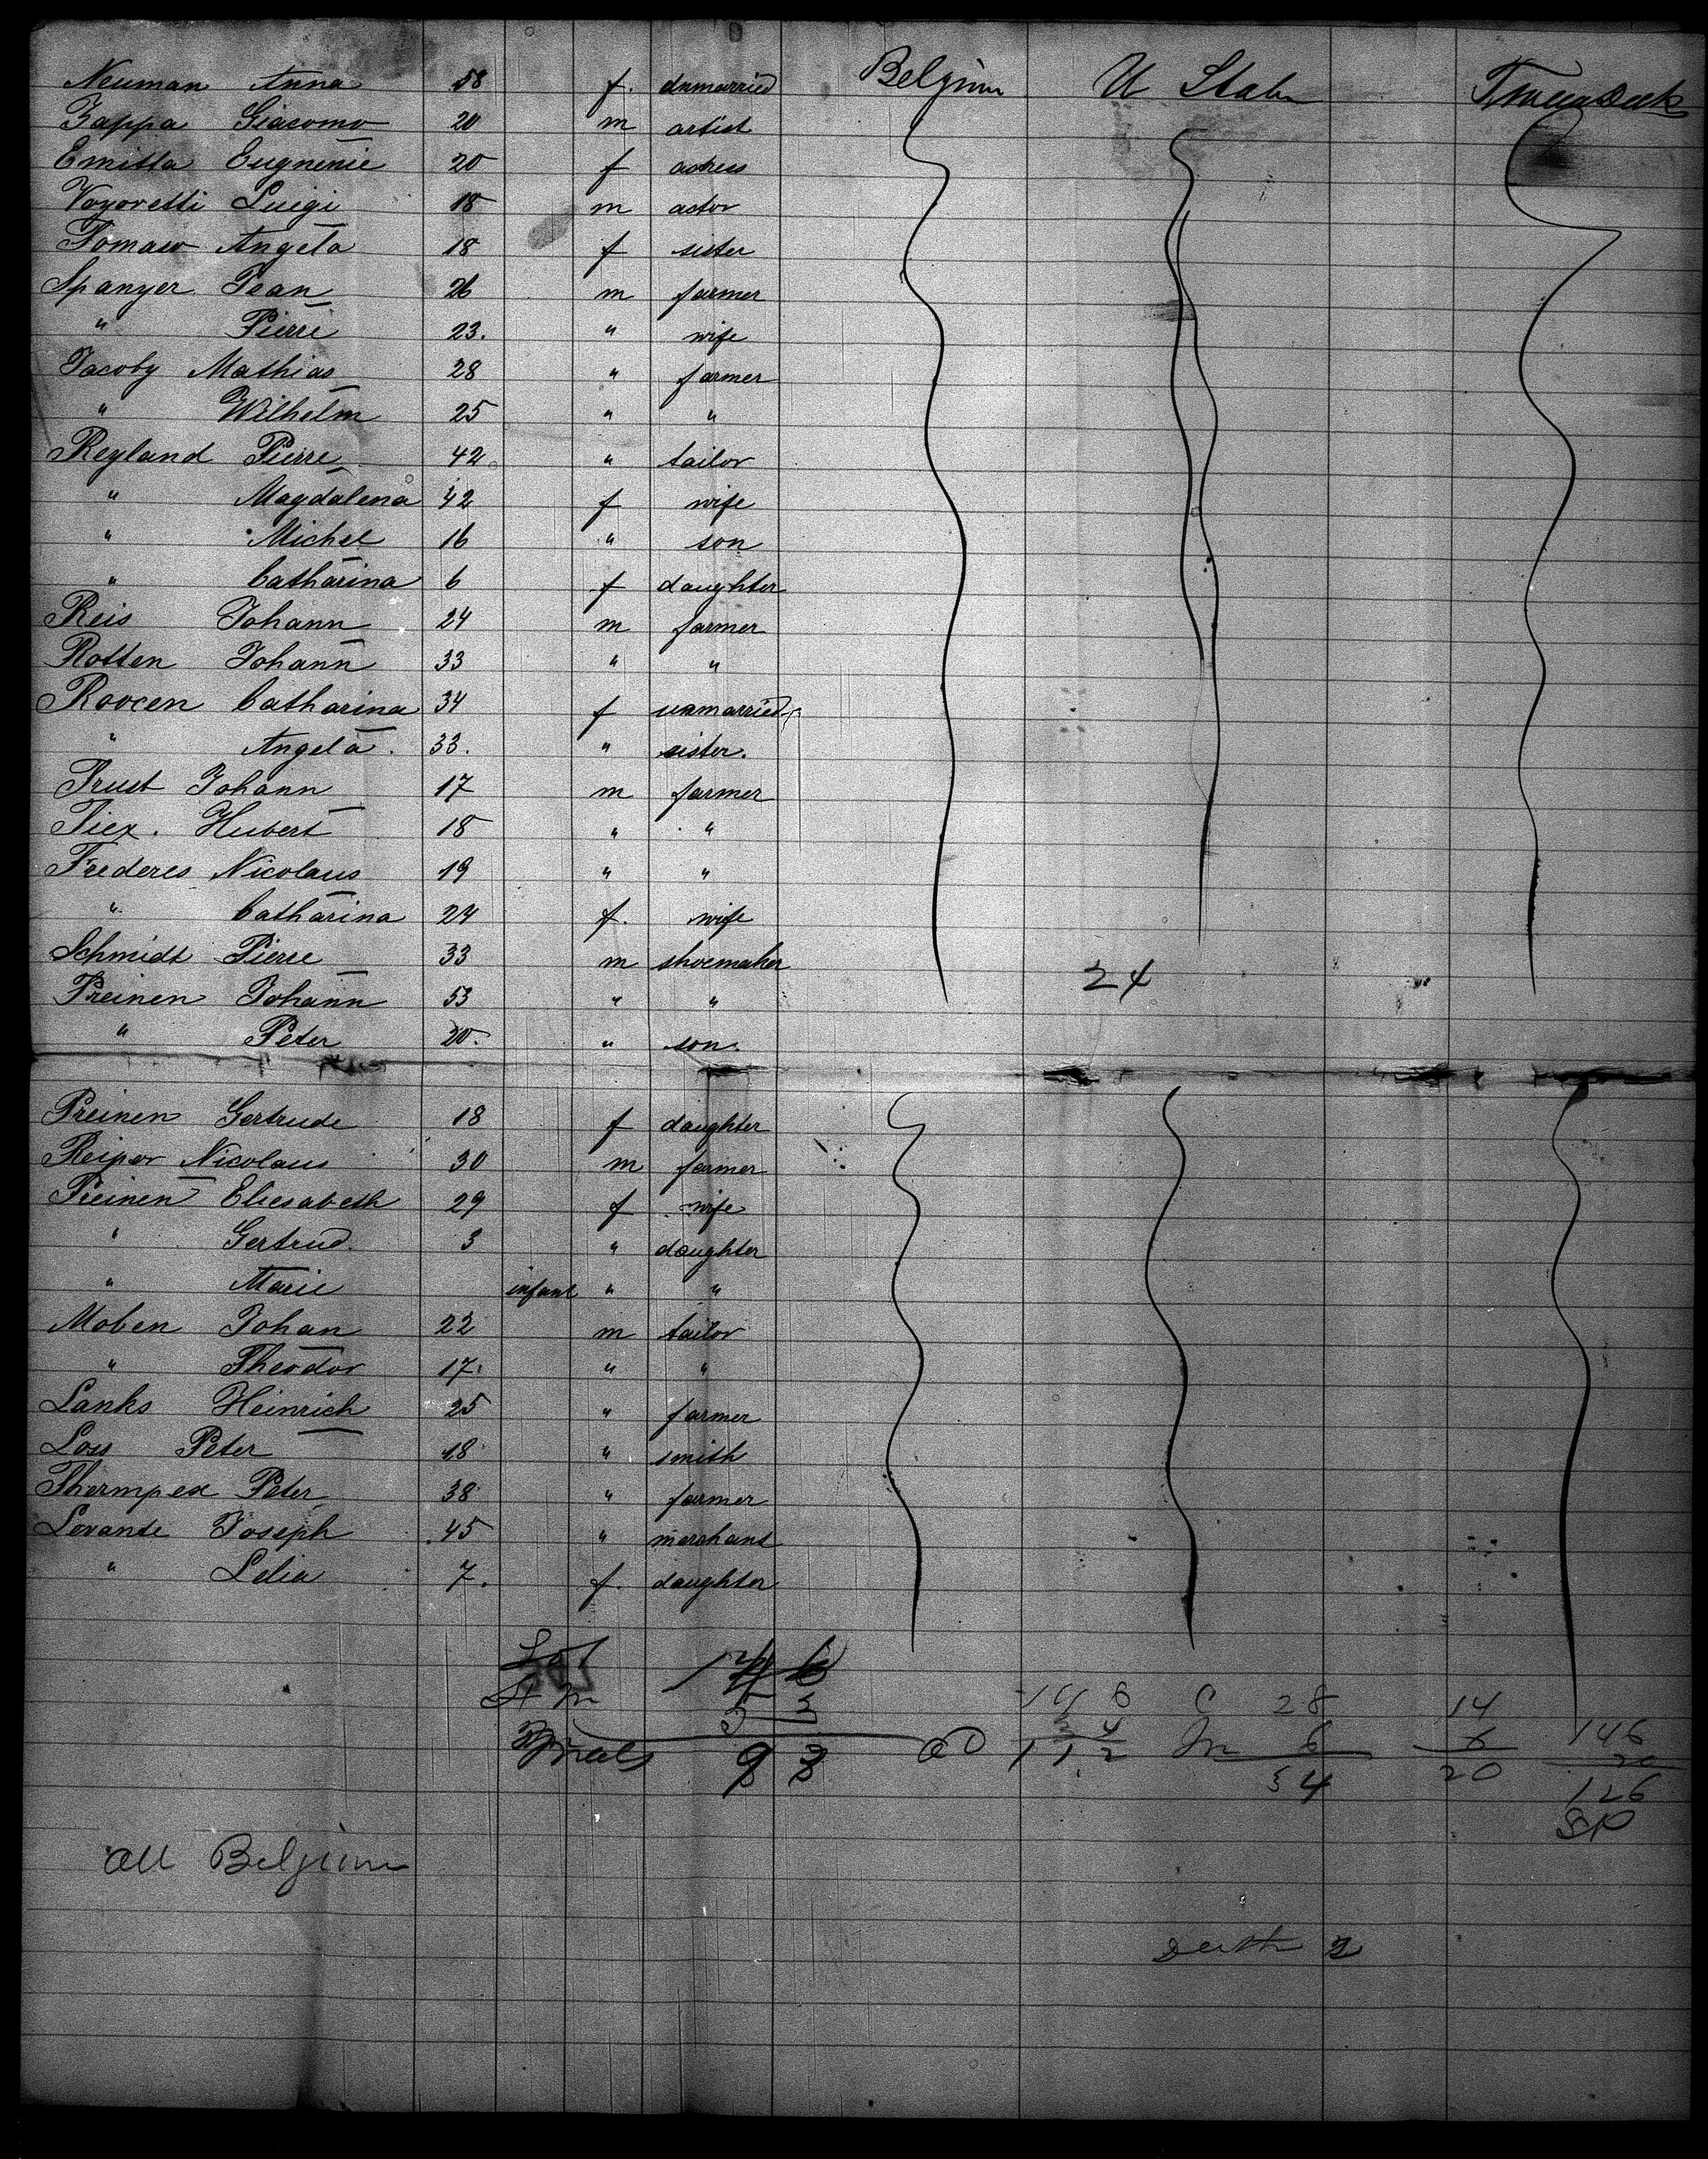 Neuman Anna 58 f. unmarried Belgium U States Tweendeck
Zappa Giacomo 20 m artist
Emilla Eugnenie 20 f actress
Voyoretti Luigi 18 m actor
Tomaso Angela 18 f sister
Spanyer Jean 26 m farmer
" Pierre 23. " wife
Jacoby Mathias 28 " farmer
" Wilhelm 25 " "
Reyland Pierre 42 " tailor
" Magdalena 42 f wife
" Michel 16 " son
" Catharina 6 f daughter
Reis Johann 24 m farmer
Rotten Johann 33 " "
Roocen Catharina 34 f unmarried
" Angela. 33. " sister.
Trust Johann 17 m farmer
Tiex. Hubert 18 " "
Frederes Nicolaus 19 " "
" Catharina 24 f. wife
Schmidt Pierre 33 m shoemaker
Preinen Johann 53 " " 24
" Peter 20. " son.
Preinen Gertrude 18 f daughter
Reiper Nicolaus 30 m farmer
Preinen Eliesabeth 29 f wife
" Gertrud. 3 " daughter
" Marie infant " "
Moben Johan 22 m tailor
" Theodor 17. " "
Lanks Heinrich 25 " farmer
Loss Peter 18 " smith
Thermpex Peter 38 " farmer
Lovante Joseph 45 " merchant
" Lelia 7. f. daughter
146 C 28 14
6 6 146
112 34 20 20
126
All Belgium
Death 2